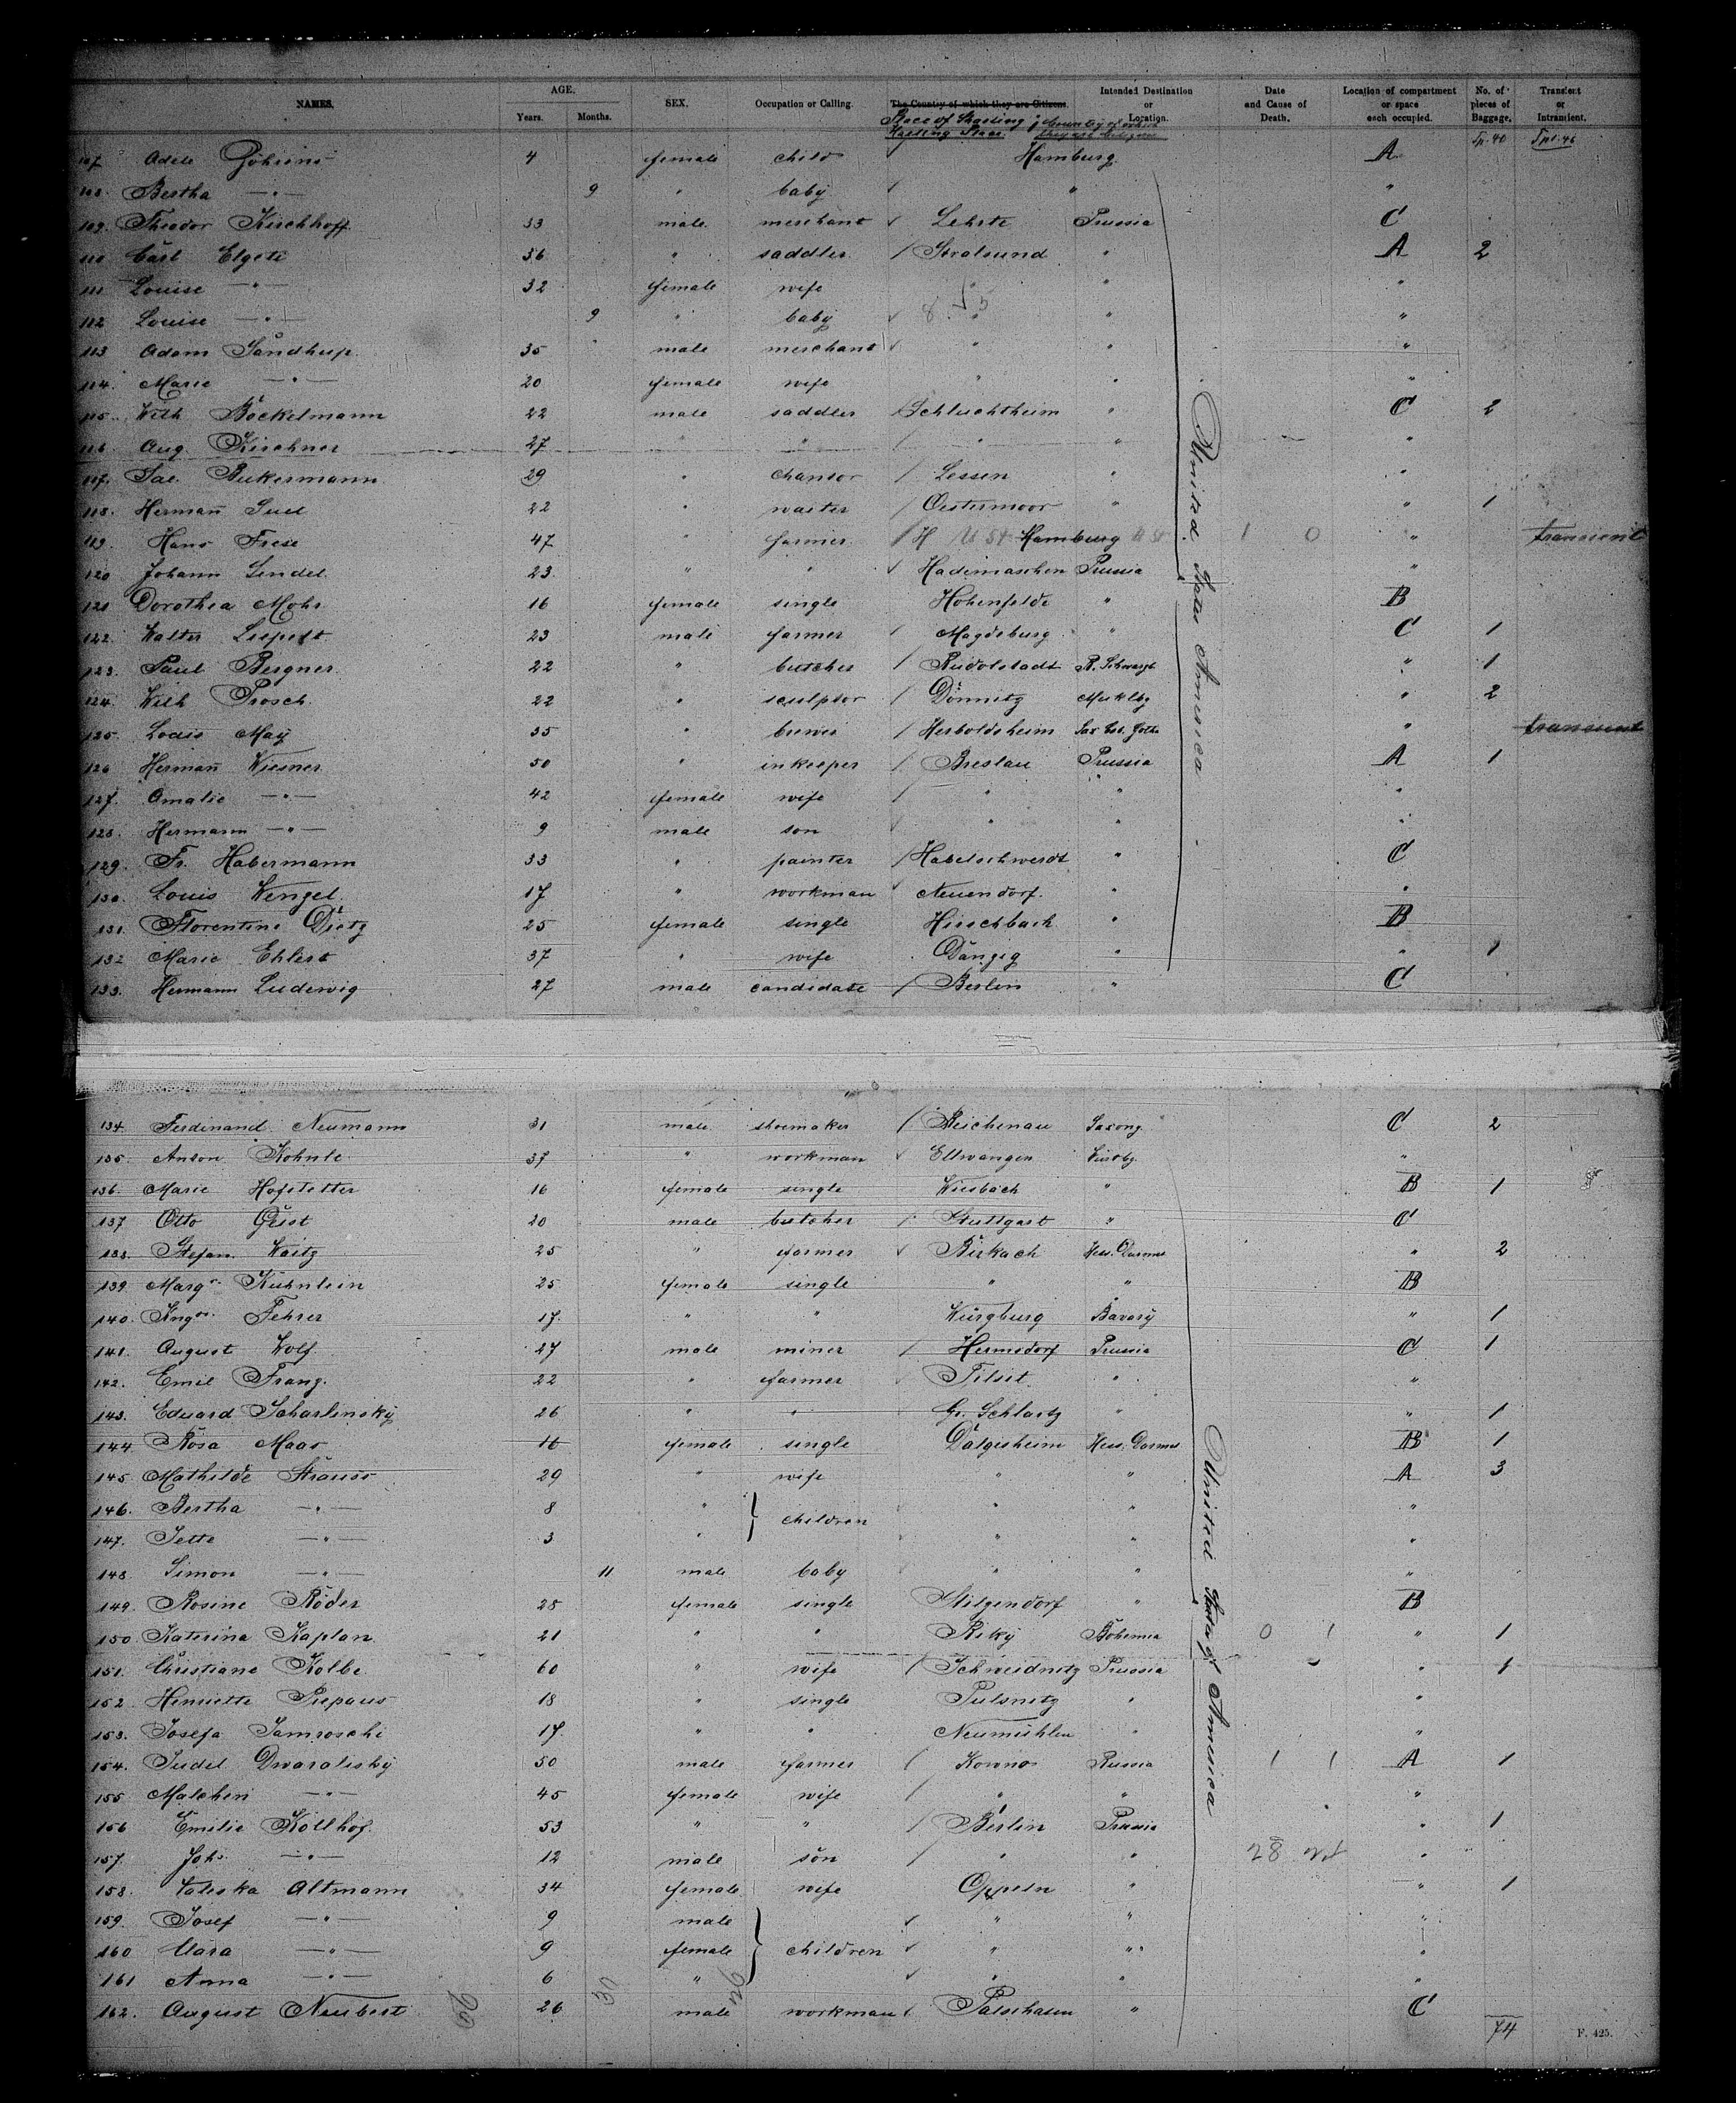 NAMES. AGE. Years. Months. SEX. Occupation or Calling. The Country of which they are Citizens. Intended Destination or Location. Date and Cause of Death. Location of compartment or space each occupied. No. of pieces of Baggage. Transient or Intransient.
107. Adele 4 female child Hamburg A
108. Bertha —"— 9 " baby " "
109. Theodor Kirchhoff 33 male merchant Lehrte Prussia C
110 Carl 36 " saddler Stralsund " A 2
111 Louise —"— 32 female wife " " "
112 Louise —"— 9 " baby " " "
113 Adam 35 male merchant " " "
114. Marie —"— 20 female wife " " "
115. Wilh Böckelmann 22 male saddler " C 2
116. Aug. Kirchner 27 " " " " "
117. 29 " Lessen " "
118. Hermañ 22 " waiter Oestermoor " " 1
119. Hans Frese 47 " farmer Hamburg " transient
120 Johann 23. " " Prussia "
121 Dorothea Mohr 16 female single Hohenfelde " B
122. Walter 23 male farmer Magdeburg " C 1
123. Paul Bergner 22 " butcher Rudolstadt " 1
124. Wilh Prosch 22 " sculptor " 2
125. Louis May 35 " brewer " transient
126 Hermañ Wiesner 50 " inkeeper Breslau Prussia A 1
127. Amalie —"— 42 female wife " " "
128. Hermann —"— 9 male son " " "
129. Fr. Habermann 33 " painter Habelschwerdt " C
130. Louis Wengel 17 " workman Neuendorf. " "
131. Florentine Dietz 25 female single Hirschbach " B
132 Marie Ehlert 37 " wife Danzig " " 1
133. Hermann Ludewig 27 male candidate Berlin " C
United States America
134. Ferdinand Neumann 31 male shoemaker Reichenau Saxony C 2
135. Anton Kohnle 37 " workman Ellwangen "
136. Marie Hofstetter 16 female single Wiesbach " B 1
137 Otto Geist 20 male butcher Stuttgart " C
138. Stefan Waitz 25 " farmer Birkach Hess. Darms " 2
139. Marg. Kühnlein 25 female single " " B
140. Fehrer 17. " " Würzburg Bavary " 1
141. August Wolf 27 male miner Hermsdorf Prussia C 1
142. Emil Franz. 22 " farmer Tilsit. " "
143. Eduard Scharlinsky 26 " " " " 1
144. Rosa Maas 16 female single Hess. Darms B 1
145. Mathilde Strauss 29 " wife " " A 3
146. Bertha —"— 8 " children " " "
147. Jette —"— 3 " " " "
148. Simon —"— 11 male baby " " "
149. Rosine Röder 28 female single " B
150. Katerina Kaplan 21 " " Bohemia 0 1 " 1
151. Christiane Kolbe 60 " wife Schweidnitz Prussia " 1
152. Henriette 18 " single Pulsnitz " "
153. Josefa 17. " " Neumühlen " "
154. Judel 50 male farmer Kowno Russia 1 1 A 1
155. Malchen —"— 45 female wife " " "
156 Emilie Köllhof. 53 " " Berlin Prussia " 1
157. Joh. —"— 12 male son " " 28 "
158. Valeska Altmann 34 female wife Oppeln " " 1
159. Josef —"— 9 male children " " "
160 Clara —"— 9 female " " "
161 Anna —"— 6 " " " "
162. August Neubert 26 male workman " C
74
United States of America
F. 425.